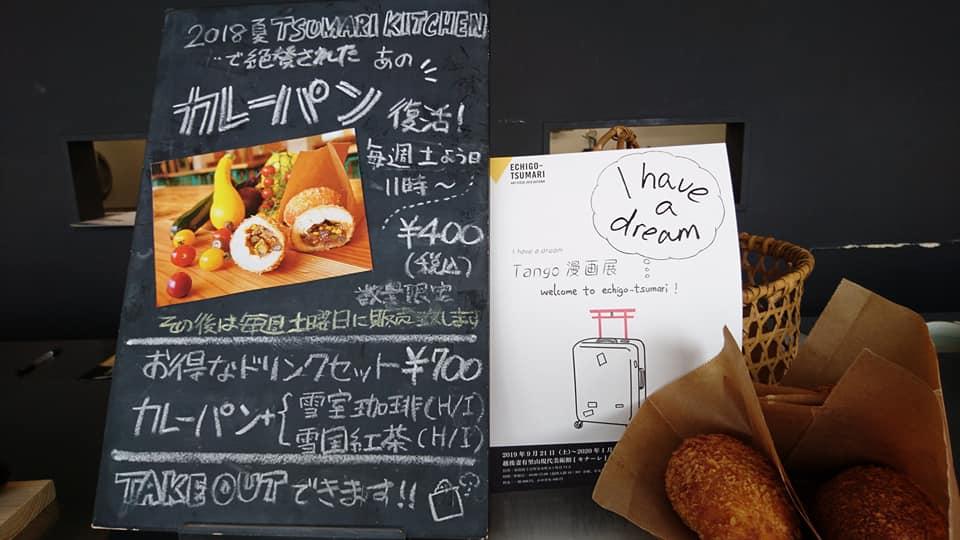 2018夏 TSUMARI KITCHEN
で絶賛された あの
カレーパン 復活!
毎週土よう日
11時～
¥400
(税込)
数量限定
その後は毎週土曜日に販売致します
お得なドリンクセット ¥700
カレーパン+{雪室珈琲(H/I)
雪国紅茶(H/I)
TAKE OUT できます!!
ECHIGO-
TSUMARI
I have
a
dream
I have a dream
Tango 漫画展
welcome to echigo-tsumari !
2019年9月21日(土)～2020年1月
越後妻有里山現代美術館[キナーレ]